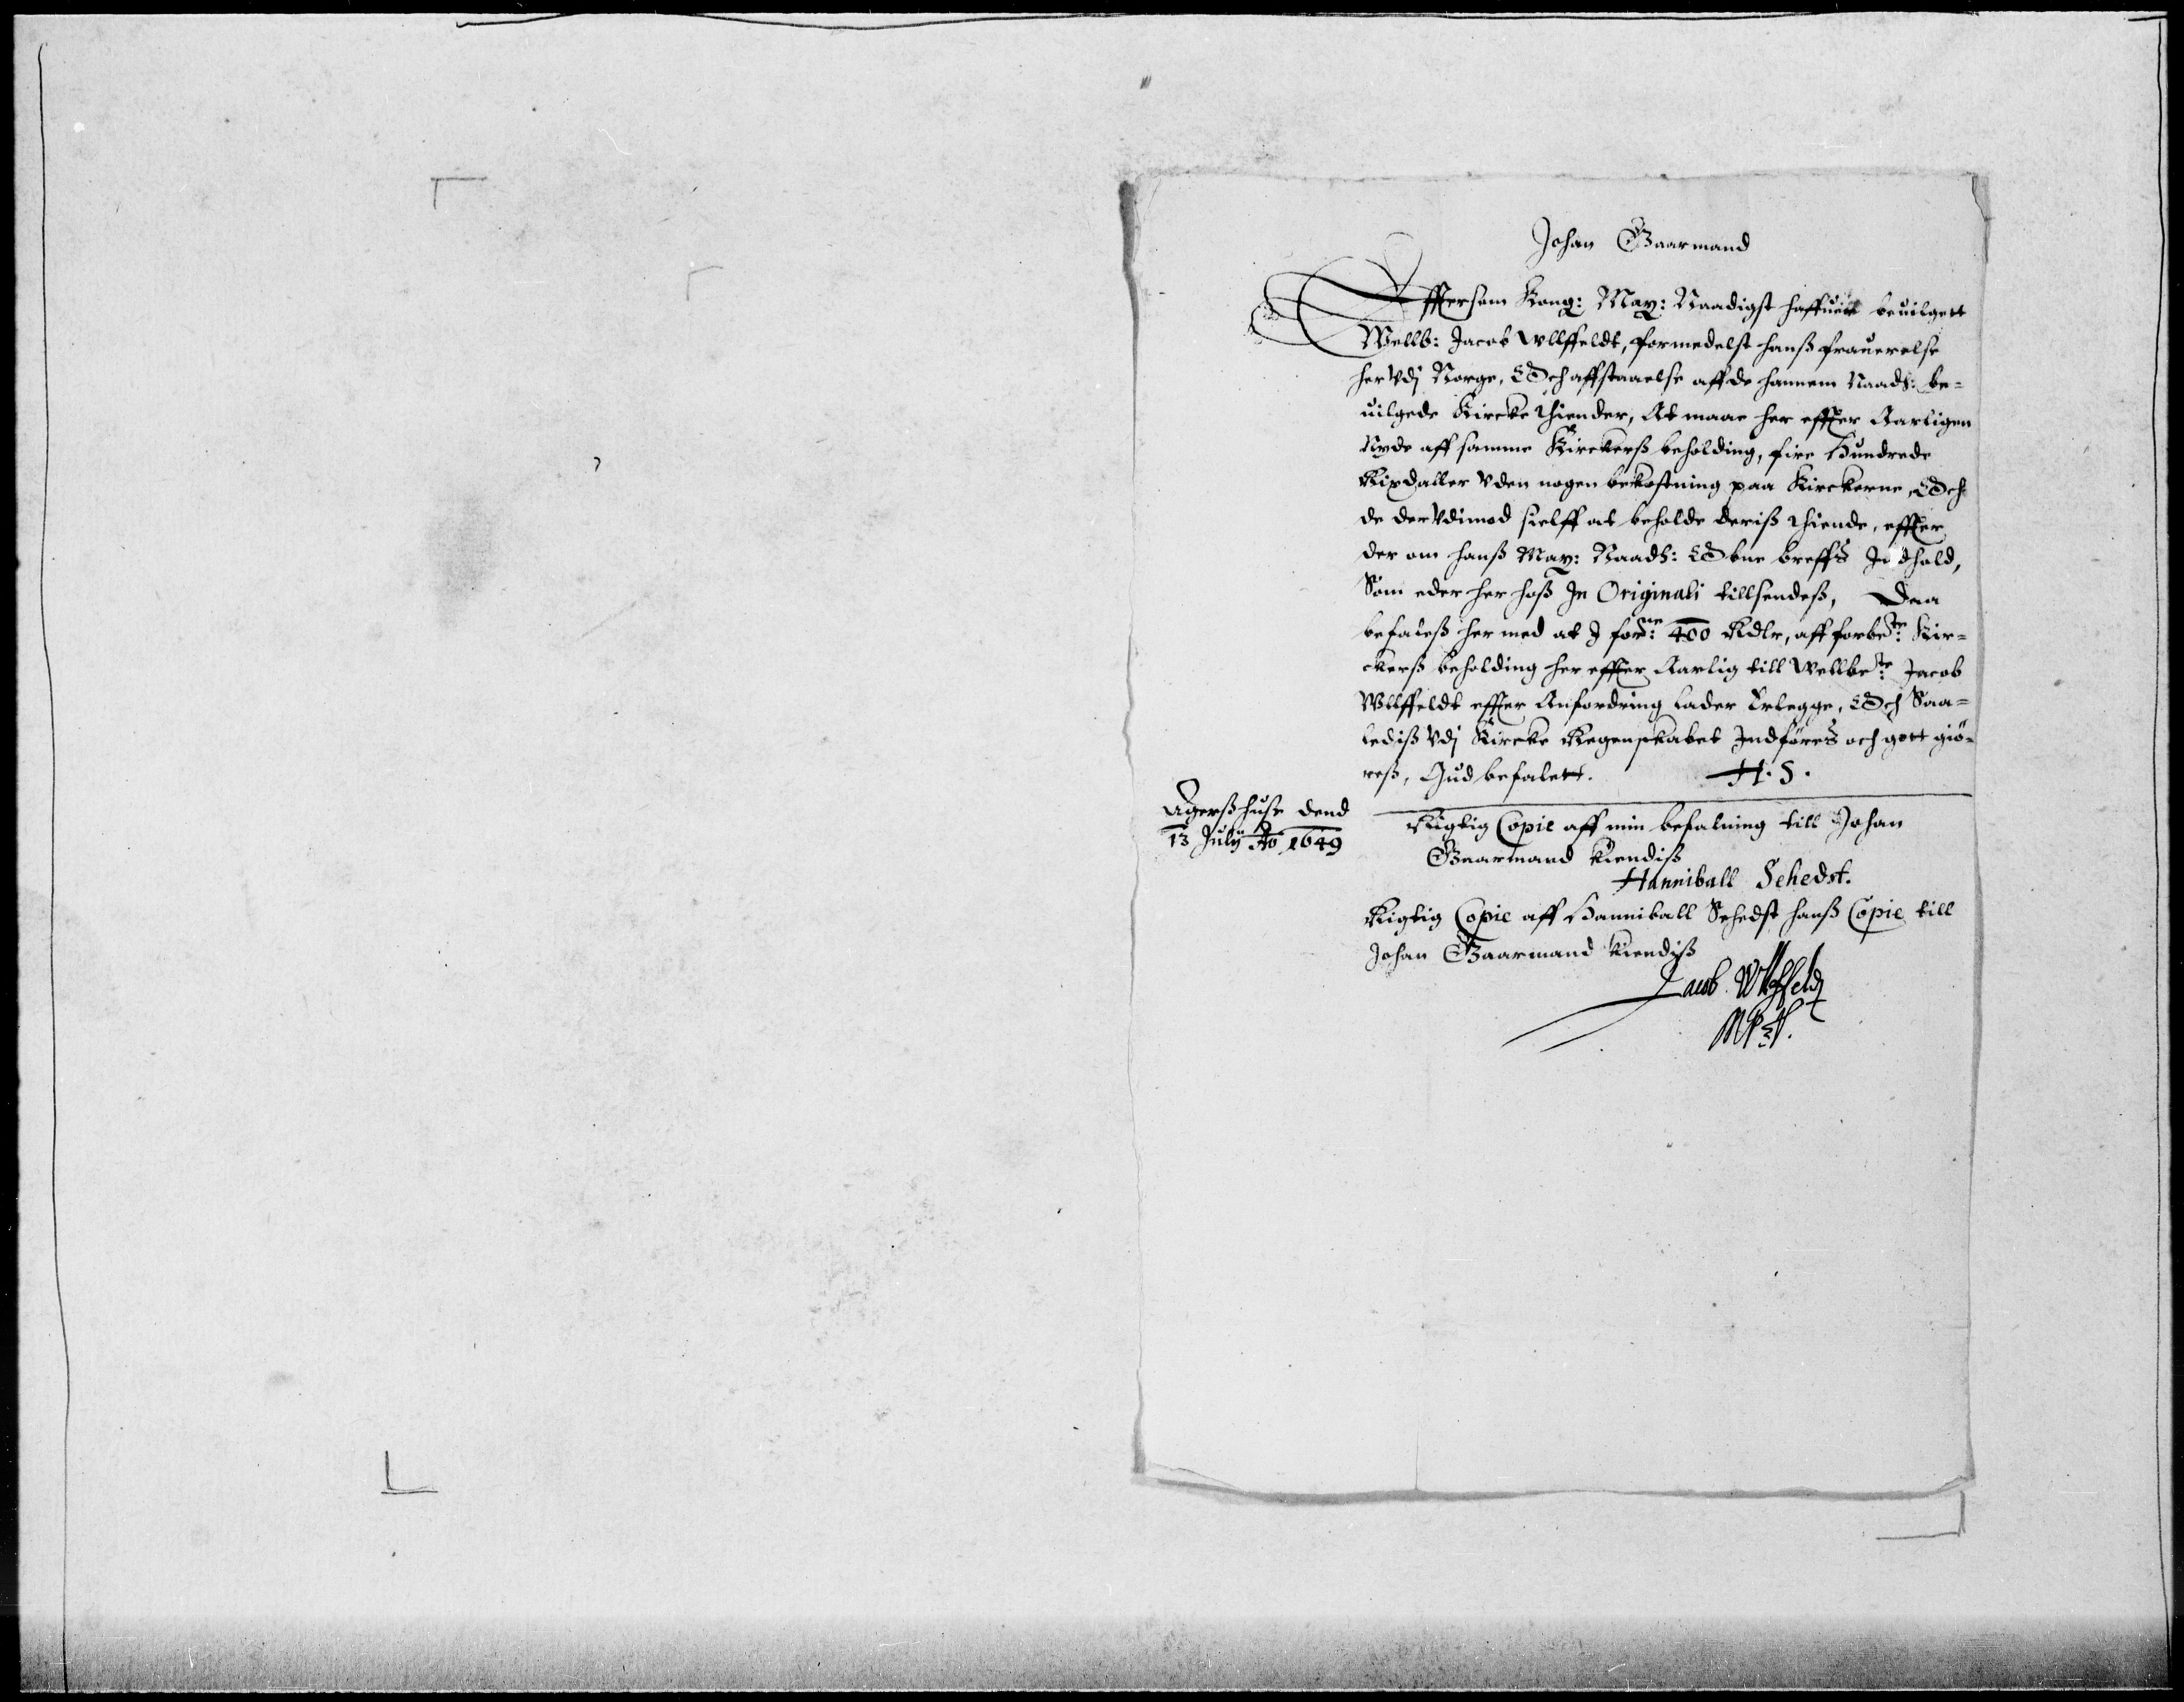 Johan Gaarmand
Effersom Kong: May: Naadigst haffuer beuilgett
Wellb: Jacob Wllffeldt, formedelst hanß frauerelse
her Vdj Norge, Och affstaaelse aff de hannem Naads: be=
uilgede Kircke thiender, At maae her effter Aarligen
Nyde aff samme Kirckerß beholding, fire Hundrede
Rixdaller Vden nogen bekostning paa Kirckerne, Och
de der Vdimod sielff at beholde deriß thiende, effter
der om hanß May: Naads: Obne breffs Indhold,
Som eder her hoß In Originali tillsendeß, Daa
befaleß her med at J forne: 400 Rdlr, aff forbete: Kir=
ckerß beholding her effter Aarlig till Wellbete: Jacob
Wllffeldt effter Anfordring lader Erlegge, Och Saa=
lediß Vdj Kircke Regenskabet Indføres och gott giö=
reß, Gud befalett. H. S.
Agerßhuse dend
13 July Ao 1649
Rigtig Copie aff min befalning till Johan
Gaarmand Kiendiß
Hanniball Sehedst.
Rigtig Copie aff Hanniball Sehedst hanß Copie till
Johan Gaarmand Kiendiß
Jacob Wllffeldt